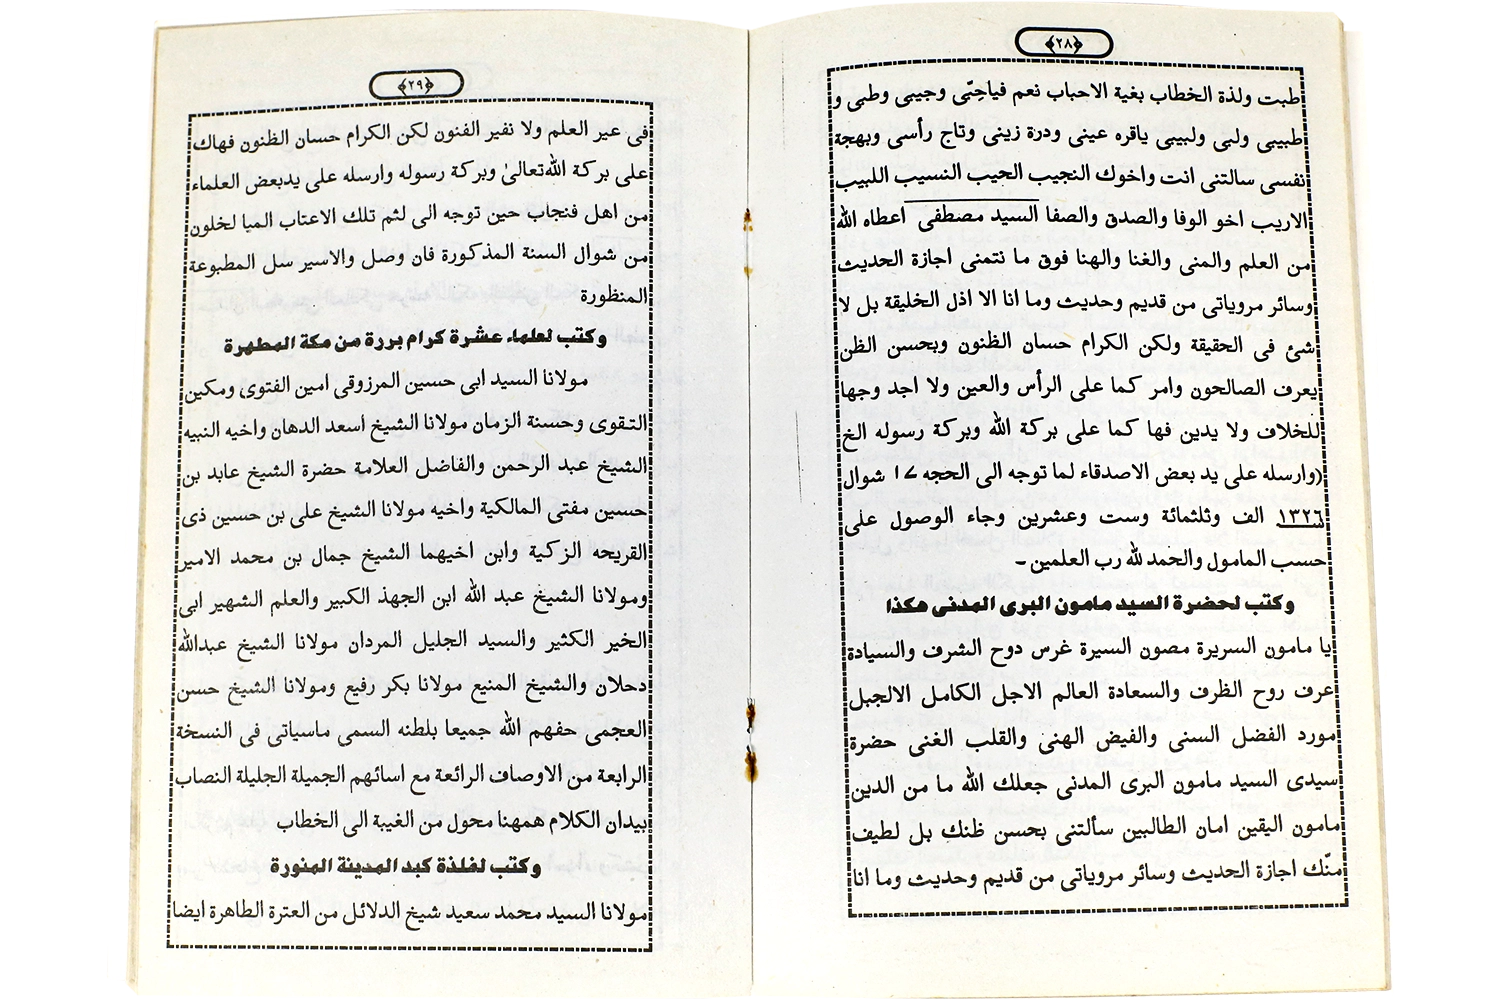 ﴿٢٨﴾
طبت ولذة الخطاب بغية الاحباب نعم فياحِبّى وجيبى وطبى و
طبيبى ولبى ولبيبى ياقره عينى ودرة زينى وتاج رأسى وبهجة
نفسى سالتنى انت واخوك النجيب الحيب النسيب اللبيب
الاريب اخو الوفا والصدق والصفا السيد مصطفى اعطاه الله
من العلم والمنى والغنا والهنا فوق ما نتمنى اجازة الحديث
وسائر مروياتى من قديم وحديث وما انا الا اذل الخليقة بل لا
شئ فى الحقيقة ولكن الكرام حسان الظنون وبحسن الظن
يعرف الصالحون وامر كما على الرأس والعين ولا اجد وجها
للخلاف ولا يدين فها كما على بركة الله وبركة رسوله الخ
(وارسله على يد بعض الاصدقاء لما توجه الى الحجه ١٧ شوال
١٣٢٦ الف وثلثمائة وست وعشرين وجاء الوصول على
حسب المامول والحمد لله رب العلمين -
وكتب لحضرة السيد مامون البرى المدنى هكذا
يا مامون السريرة مصون السيرة غرس دوح الشرف والسيادة
عرف روح الظرف والسعادة العالم الاجل الكامل الالجبل
مورد الفضل السنى والفيض الهنى والقلب الغنى حضرة
سيدى السيد مامون البرى المدنى جعلك الله ما من الدين
مامون اليقين امان الطالبين سألتنى بحسن ظنك بل لطيف
منّك اجازة الحديث وسائر مروياتى من قديم وحديث وما انا
﴿٢٩﴾
فى عير العلم ولا نفير الفنون لكن الكرام حسان الظنون فهاك
على بركة الله تعالىٰ وبركة رسوله وارسله على يدبعض العلماء
من اهل فنجاب حين توجه الى لثم تلك الاعتاب الميا لخلون
من شوال السنة المذكورة فان وصل والاسير سل المطبوعة
المنظورة
وكتب لعلماء عشرة كرام بررة من مكة المطهرة
مولانا السيد ابى حسين المرزوقى امين الفتوى ومكين
التقوى وحسنة الزمان مولانا الشيخ اسعد الدهان واخيه النبيه
الشيخ عبد الرحمن والفاضل العلامة حضرة الشيخ عابد بن
حسين مفتى المالكية واخيه مولانا الشيخ على بن حسين ذى
القريحه الزكية وابن اخيهما الشيخ جمال بن محمد الامير
ومولانا الشيخ عبد الله ابن الجهذ الكبير والعلم الشهير ابى
الخير الكثير والسيد الجليل المردان مولانا الشيخ عبدالله
دحلان والشيخ المنيع مولانا بكر رفيع ومولانا الشيخ حسن
العجمى حفهم الله جميعا بلطنه السمى ماسياتى فى النسخة
الرابعة من الاوصاف الرائعة مع اسائهم الجميلة الجليلة النصاب
بيدان الكلام همهنا محول من الغيبة الى الخطاب
وكتب لفلذة كبد المدينة المنورة
مولانا السيد محمد سعيد شيخ الدلائل من العترة الطاهرة ايضا